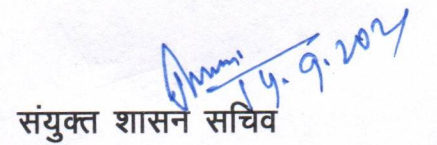 14.9.2021
संयुक्त शासन सचिव